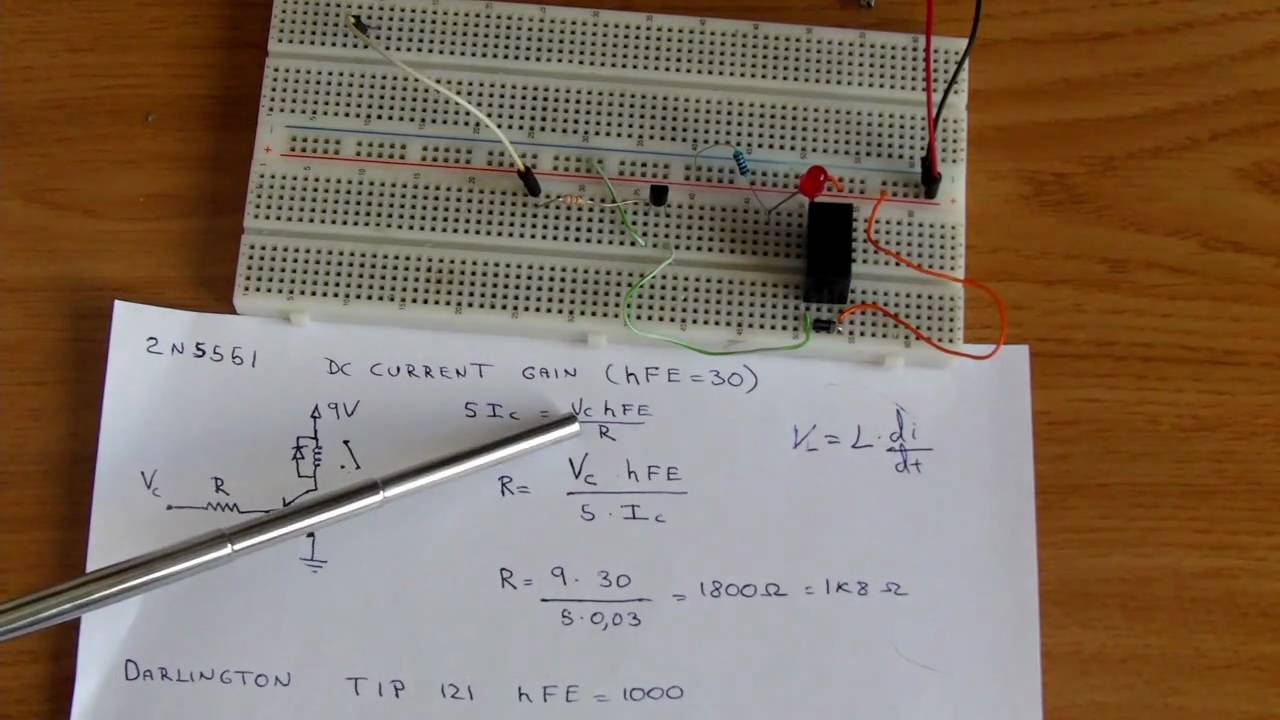 2N5551
DC CURRENT GAIN (hFE=30)
9V
Vc
R
5Ic = Vc hFE / R
R= Vc . hFE / 5 . Ic
VL = L . di / dt
R = 9 . 30 / 5 . 0,03 = 1800Ω = 1K8 Ω
DARLINGTON TIP 121 hFE = 1000